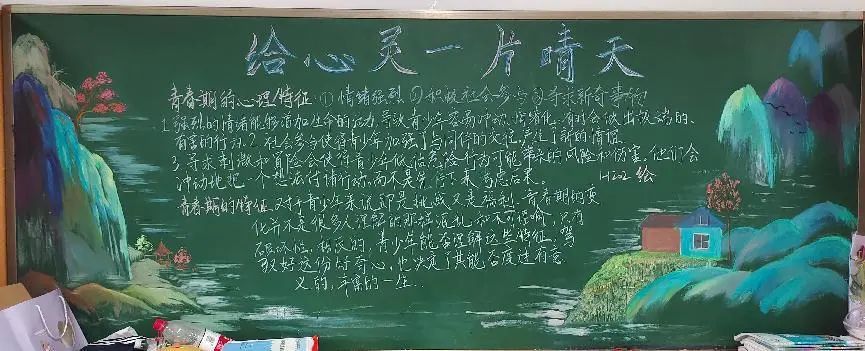 给心灵一片晴天
青春期的心理特征:①情绪强烈②积极社会参与③寻求新奇事物
1.强烈的情绪能够增加生命的活力,导致青少年容易冲动,情绪化,有时会做出极端的、
有害的行为.2.社会参与使得青少年加强了与同伴的交往,产生了新的情谊.
3.寻求刺激和冒险会使得青少年低估危险行为可能带来的风险和伤害.他们会
冲动地把一个想法付诸行动,而不是先停下来考虑后果。
H202 绘
青春期的特征,对于青少年来说即是挑战又是福利.青春期的变
化并不是很多人理解的那样混乱和不可信,只有
破坏性.相反的,青少年能否理解这些特征,驾
驭好这份好奇心,也决定了其能否度过有意
义的,幸福的一生..